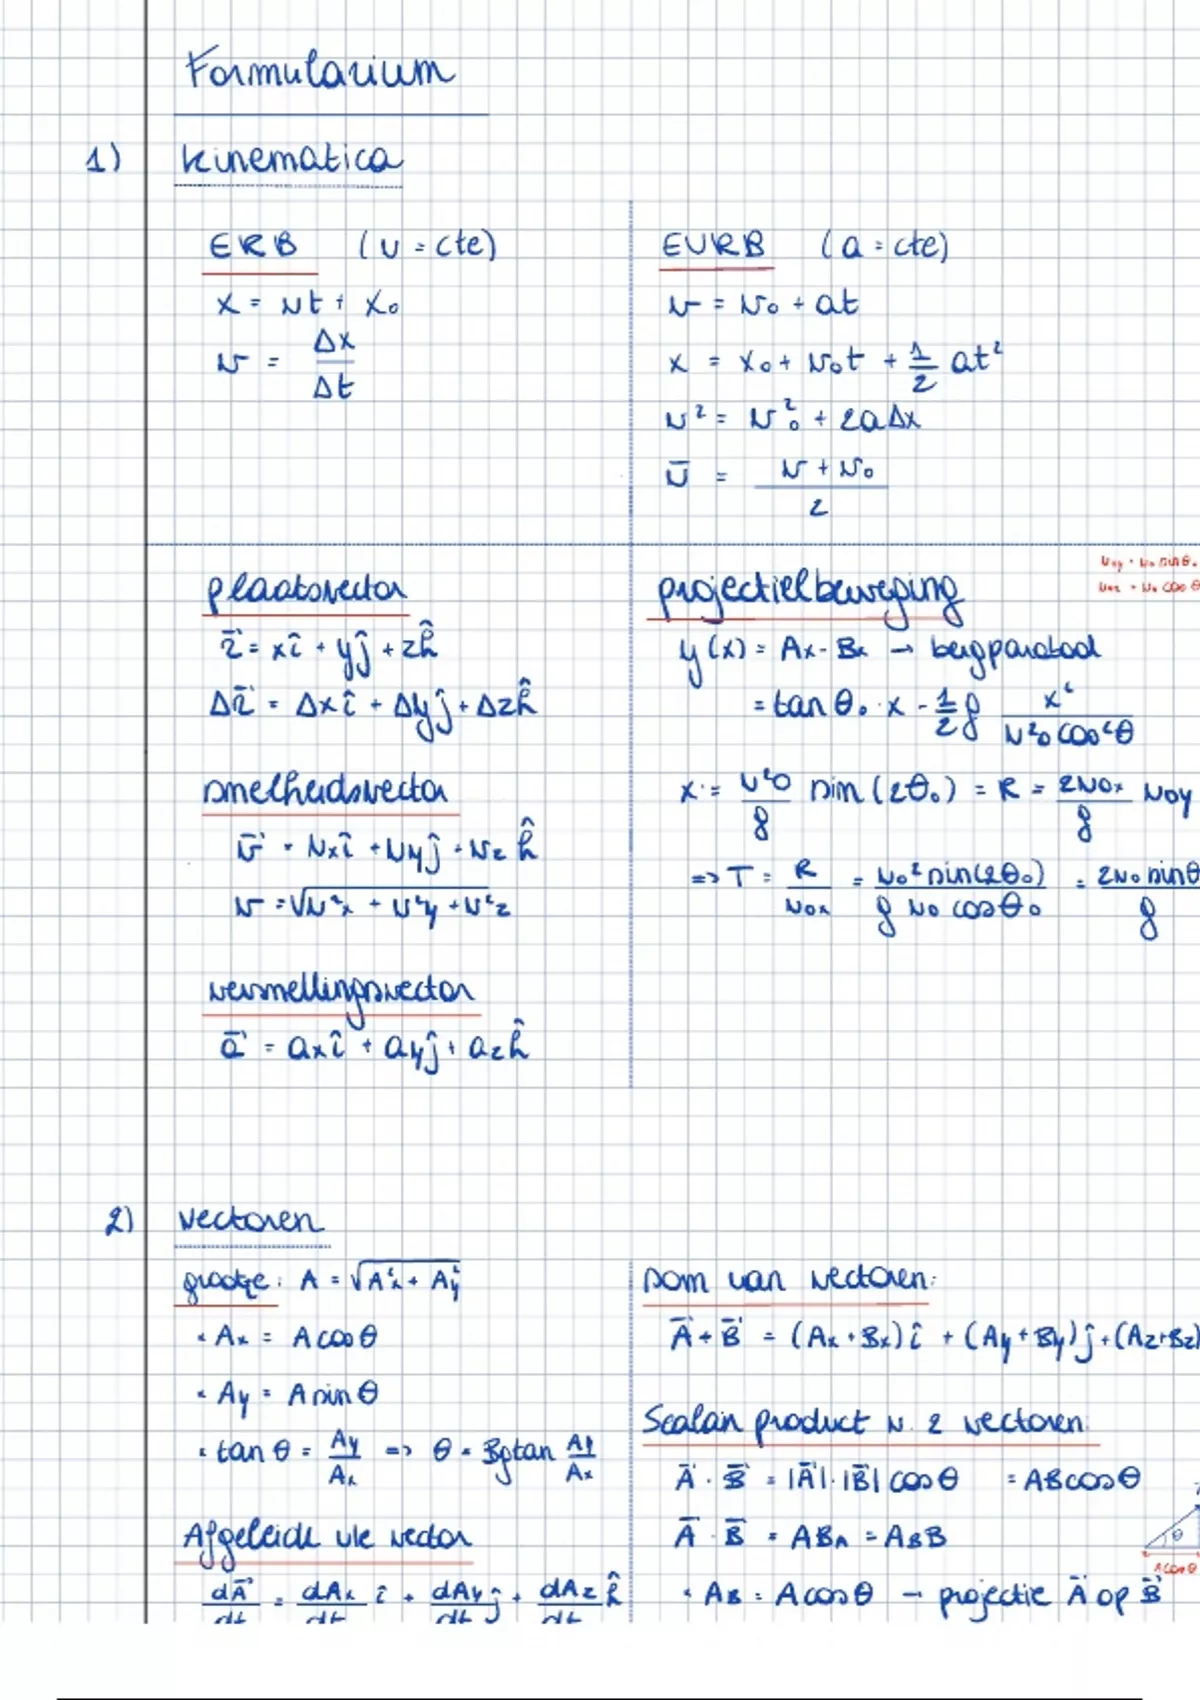 Formularium
1) kinematica
ERB (v = cte)
x = vt + x₀
v = Δx/Δt
EVRB (a = cte)
v = v₀ + at
x = x₀ + v₀t + 1/2 at²
v² = v₀² + 2aΔx
v̄ = (v + v₀)/2
plaatsvector
r⃗ = xî + yĵ + zk̂
Δr⃗ = Δxî + Δyĵ + Δzk̂
snelheidsvector
v⃗ = vxî + vyĵ + vzk̂
v = √(v²x + v²y + v²z)
versnellingsvector
a⃗ = axî + ayĵ + azk̂
v₀y = v₀ sin θ₀
v₀x = v₀ cos θ
projectielbeweging
y(x) = Ax - Bx → bergparabool
= tan θ₀ · x - 1/2 g x²/(v²₀ cos²θ)
x = v²₀/g sin(2θ₀) = R = 2v₀x/g v₀y
=> T = R/v₀x = v₀² sin(2θ₀)/(g v₀ cos θ₀) = 2v₀ sin θ/g
2) vectoren
grootte: A = √(A²x + A²y)
• Ax = A cos θ
• Ay = A sin θ
• tan θ = Ay/Ax => θ = Bgtan Ay/Ax
Afgeleide vle vector
dA⃗/dt = dAx/dt î + dAy/dt ĵ + dAz/dt k̂
som van vectoren:
A⃗ + B⃗ = (Ax + Bx)î + (Ay + By)ĵ + (Az + Bz)
Scalair product v. 2 vectoren:
A⃗ · B⃗ = |A⃗| · |B⃗| cos θ = AB cos θ
A⃗ · B⃗ = ABA = ABB
• AB = A cos θ → projectie A⃗ op B⃗
θ
A cos θ